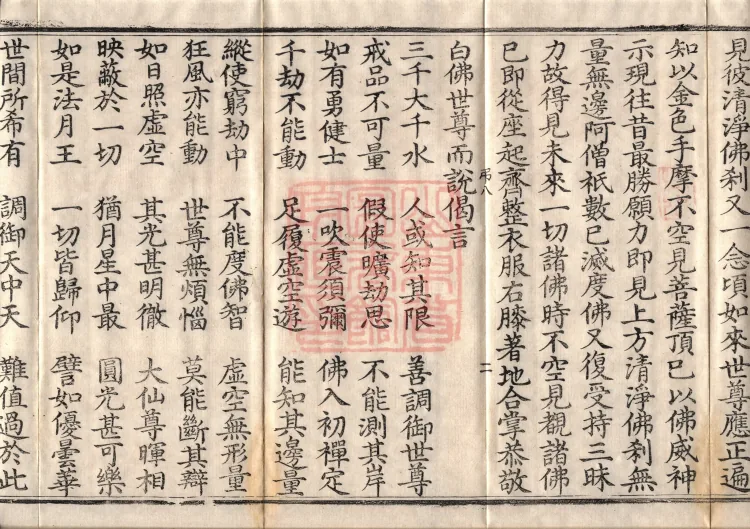 見彼清淨佛刹又一念頃如來世尊應正遍
知以金色手摩不空見菩薩頂已以佛威神
示現往昔最勝願力即見上方清淨佛刹無
量無邊阿僧祇數已滅度佛又復受持三昧
力故得見未來一切諸佛時不空見觀諸佛
已即從座起齊整衣服右膝著地合掌恭敬
白佛世尊而說偈言
三千大千水 人或知其限 善調御世尊
戒品不可量 假使曠劫思 不能測其岸
如有勇健士 一吹震須彌 佛入初禪定
千劫不能動 足履虛空遊 能知其邊量
縱使窮劫中 不能度佛智 虛空無形量
狂風亦能動 世尊無煩惱 莫能斷其辯
如日照虛空 其光甚明徹 大仙尊暉相
映蔽於一切 猶月星中最 圓光甚可樂
如是法月王 一切皆歸仰 譬如優曇華
世間所希有 調御天中天 難值過於此